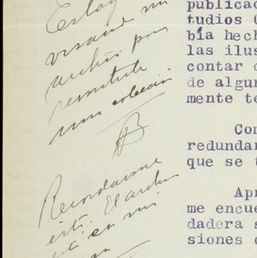 Estoy
revisando mi
archivo para
remitirle
una colección
Recordarme
esto. El archivo
está en mi
publicac
tudios C
bía hech
las ilus
contar c
de algur
mente te
Con
redundar
que se t
Apr
me encue
dadera s
siones d